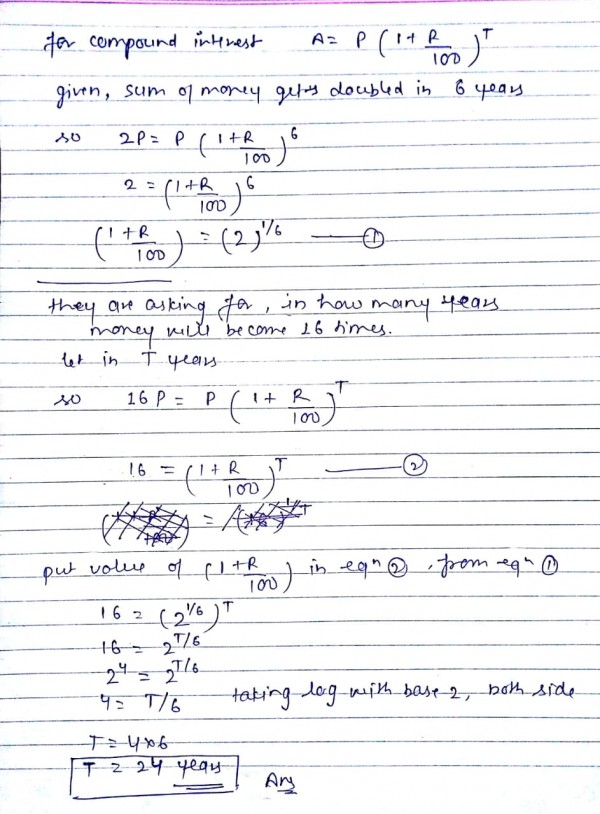 for compound interest A = P (1 + R/100)^T
given, sum of money gets doubled in 6 years
so 2P = P (1+R/100)^6
2 = (1+R/100)^6
(1+R/100) = (2)^1/6 ——— ①
they are asking for, in how many years
money will become 16 times.
let in T years
so 16P = P (1 + R/100)^T
16 = (1+R/100)^T ——— ②
put value of (1+R/100) in eqn ②, from eqn ①
16 = (2^1/6)^T
16 = 2^T/6
2^4 = 2^T/6
4 = T/6 taking log with base 2, both side
T = 4×6
T = 24 years Ans